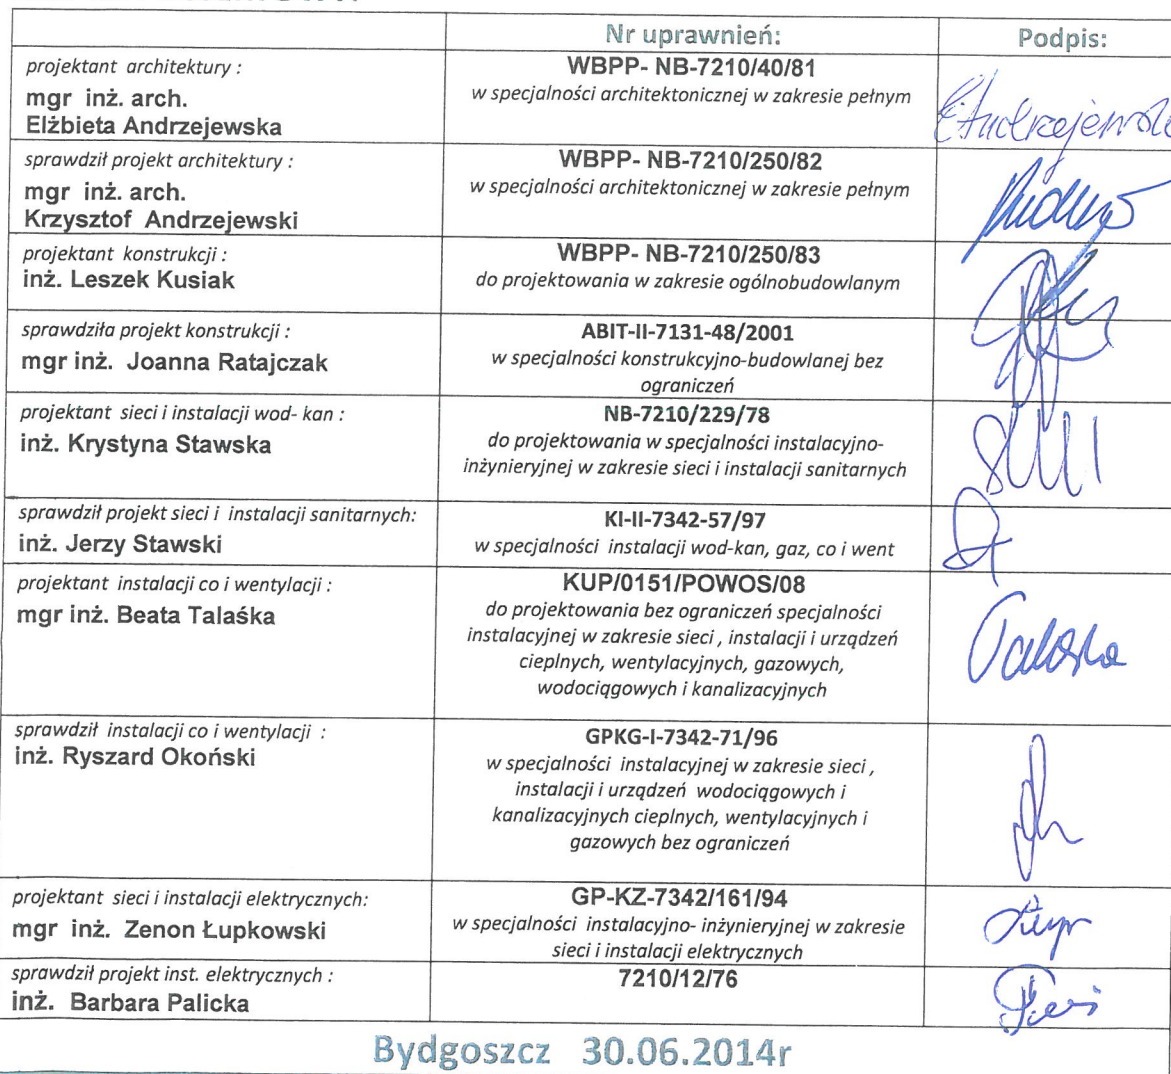 Nr uprawnień: Podpis:
projektant architektury :
mgr inż. arch.
Elżbieta Andrzejewska
WBPP- NB-7210/40/81
w specjalności architektonicznej w zakresie pełnym
EAndrzejewska
sprawdził projekt architektury :
mgr inż. arch.
Krzysztof Andrzejewski
WBPP- NB-7210/250/82
w specjalności architektonicznej w zakresie pełnym
projektant konstrukcji :
inż. Leszek Kusiak
WBPP- NB-7210/250/83
do projektowania w zakresie ogólnobudowlanym
sprawdziła projekt konstrukcji :
mgr inż. Joanna Ratajczak
ABIT-II-7131-48/2001
w specjalności konstrukcyjno-budowlanej bez
ograniczeń
projektant sieci i instalacji wod- kan :
inż. Krystyna Stawska
NB-7210/229/78
do projektowania w specjalności instalacyjno-
inżynieryjnej w zakresie sieci i instalacji sanitarnych
sprawdził projekt sieci i instalacji sanitarnych:
inż. Jerzy Stawski
KI-II-7342-57/97
w specjalności instalacji wod-kan, gaz, co i went
projektant instalacji co i wentylacji :
mgr inż. Beata Talaśka
KUP/0151/POWOS/08
do projektowania bez ograniczeń specjalności
instalacyjnej w zakresie sieci , instalacji i urządzeń
cieplnych, wentylacyjnych, gazowych,
wodociągowych i kanalizacyjnych
Talaśka
sprawdził instalacji co i wentylacji :
inż. Ryszard Okoński
GPKG-I-7342-71/96
w specjalności instalacyjnej w zakresie sieci ,
instalacji i urządzeń wodociągowych i
kanalizacyjnych cieplnych, wentylacyjnych i
gazowych bez ograniczeń
projektant sieci i instalacji elektrycznych:
mgr inż. Zenon Łupkowski
GP-KZ-7342/161/94
w specjalności instalacyjno- inżynieryjnej w zakresie
sieci i instalacji elektrycznych
sprawdził projekt inst. elektrycznych :
inż. Barbara Palicka
7210/12/76
Bydgoszcz 30.06.2014r